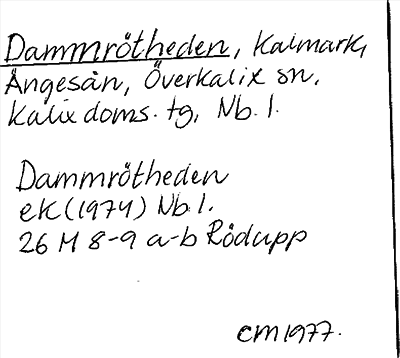 Dammrötheden, Kalmark,
Ängesån, Överkalix sn.
Kalix doms. tg, Nb. l.
Dammrötheden
ek (1974) Nb l.
26 M 8-9 a-b Rödupp
CM 1977.